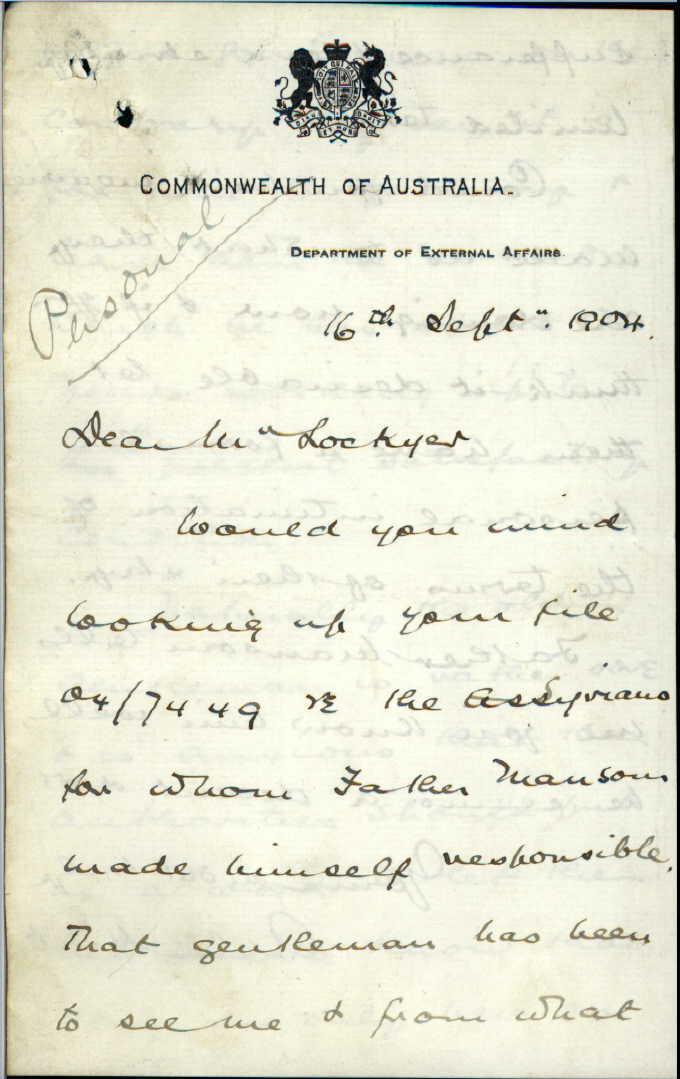 COMMONWEALTH OF AUSTRALIA.
DEPARTMENT OF EXTERNAL AFFAIRS.
Personal
16th Sept. 1904.
Dear Mr Lockyer
Would you mind
looking up your file
04/7449 re the Assyrians
for whom Father Mansom
made himself responsible.
That gentleman has been
to see me & from what